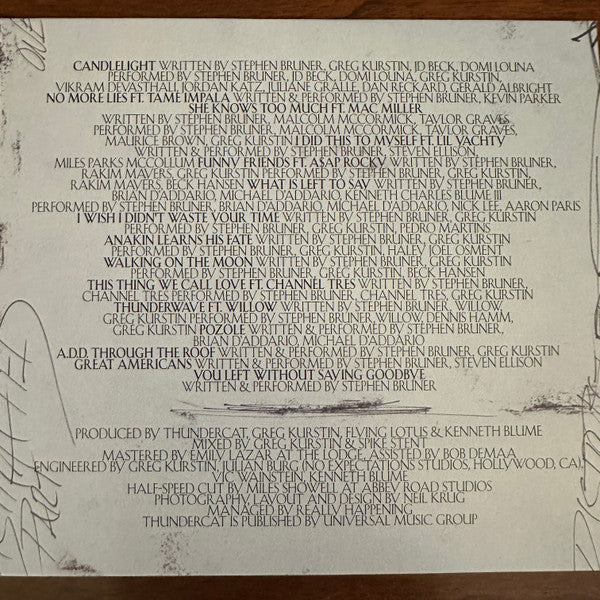 CANDLELIGHT WRITTEN BY STEPHEN BRUNER, GREG KURSTIN, JD BECK, DOMI LOUNA
PERFORMED BY STEPHEN BRUNER, JD BECK, DOMI LOUNA, GREG KURSTIN,
VIKRAM DEVASTHALI, JORDAN KATZ, JULIANE GRALLE, DAN RECKARD, GERALD ALBRIGHT
NO MORE LIES FT. TAME IMPALA WRITTEN & PERFORMED BY STEPHEN BRUNER, KEVIN PARKER
SHE KNOWS TOO MUCH FT. MAC MILLER
WRITTEN BY STEPHEN BRUNER, MALCOLM MCCORMICK, TAYLOR GRAVES
PERFORMED BY STEPHEN BRUNER, MALCOLM MCCORMICK, TAYLOR GRAVES,
MAURICE BROWN, GREG KURSTIN I DID THIS TO MYSELF FT. LIL YACHTY
WRITTEN & PERFORMED BY STEPHEN BRUNER, STEVEN ELLISON,
MILES PARKS MCCOLLUM FUNNY FRIENDS FT. A$AP ROCKY WRITTEN BY STEPHEN BRUNER,
RAKIM MAYERS, GREG KURSTIN PERFORMED BY STEPHEN BRUNER, GREG KURSTIN,
RAKIM MAYERS, BECK HANSEN WHAT IS LEFT TO SAY WRITTEN BY STEPHEN BRUNER,
BRIAN D'ADDARIO, MICHAEL D'ADDARIO, KENNETH CHARLES BLUME III
PERFORMED BY STEPHEN BRUNER, BRIAN D'ADDARIO, MICHAEL D'ADDARIO, NICK LEE, AARON PARIS
I WISH I DIDN'T WASTE YOUR TIME WRITTEN BY STEPHEN BRUNER, GREG KURSTIN
PERFORMED BY STEPHEN BRUNER, GREG KURSTIN, PEDRO MARTINS
ANAKIN LEARNS HIS FATE WRITTEN BY STEPHEN BRUNER, GREG KURSTIN
PERFORMED BY STEPHEN BRUNER, GREG KURSTIN, HALEY JOEL OSMENT
WALKING ON THE MOON WRITTEN BY STEPHEN BRUNER, GREG KURSTIN
PERFORMED BY STEPHEN BRUNER, GREG KURSTIN, BECK HANSEN
THIS THING WE CALL LOVE FT. CHANNEL TRES WRITTEN BY STEPHEN BRUNER,
CHANNEL TRES PERFORMED BY STEPHEN BRUNER, CHANNEL TRES, GREG KURSTIN
THUNDERWAVE FT. WILLOW WRITTEN BY STEPHEN BRUNER, WILLOW,
GREG KURSTIN PERFORMED BY STEPHEN BRUNER, WILLOW, DENNIS HAMM,
GREG KURSTIN POZOLE WRITTEN & PERFORMED BY STEPHEN BRUNER,
BRIAN D'ADDARIO, MICHAEL D'ADDARIO
A.D.D. THROUGH THE ROOF WRITTEN & PERFORMED BY STEPHEN BRUNER, GREG KURSTIN
GREAT AMERICANS WRITTEN & PERFORMED BY STEPHEN BRUNER, STEVEN ELLISON
YOU LEFT WITHOUT SAYING GOODBYE
WRITTEN & PERFORMED BY STEPHEN BRUNER
PRODUCED BY THUNDERCAT, GREG KURSTIN, FLYING LOTUS & KENNETH BLUME
MIXED BY GREG KURSTIN & SPIKE STENT
MASTERED BY EMILY LAZAR AT THE LODGE, ASSISTED BY BOB DEMAA
ENGINEERED BY GREG KURSTIN, JULIAN BURG (NO EXPECTATIONS STUDIOS, HOLLYWOOD, CA),
VIC WAINSTEIN, KENNETH BLUME
HALF-SPEED CUT BY MILES SHOWELL AT ABBEY ROAD STUDIOS
PHOTOGRAPHY, LAYOUT AND DESIGN BY NEIL KRUG
MANAGED BY REALLY HAPPENING
THUNDERCAT IS PUBLISHED BY UNIVERSAL MUSIC GROUP